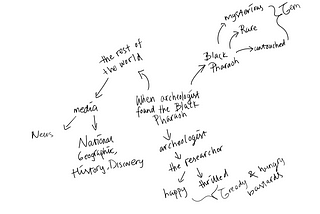 mysterious
Rare
Gem
untouched
Black
Pharaoh
the rest of
the world
media
News
National
Geographic,
History, Discovery
When archeologist
found the Black
Pharaoh
archeologist
the researcher
happy
thrilled
Greedy & hungry
bastards